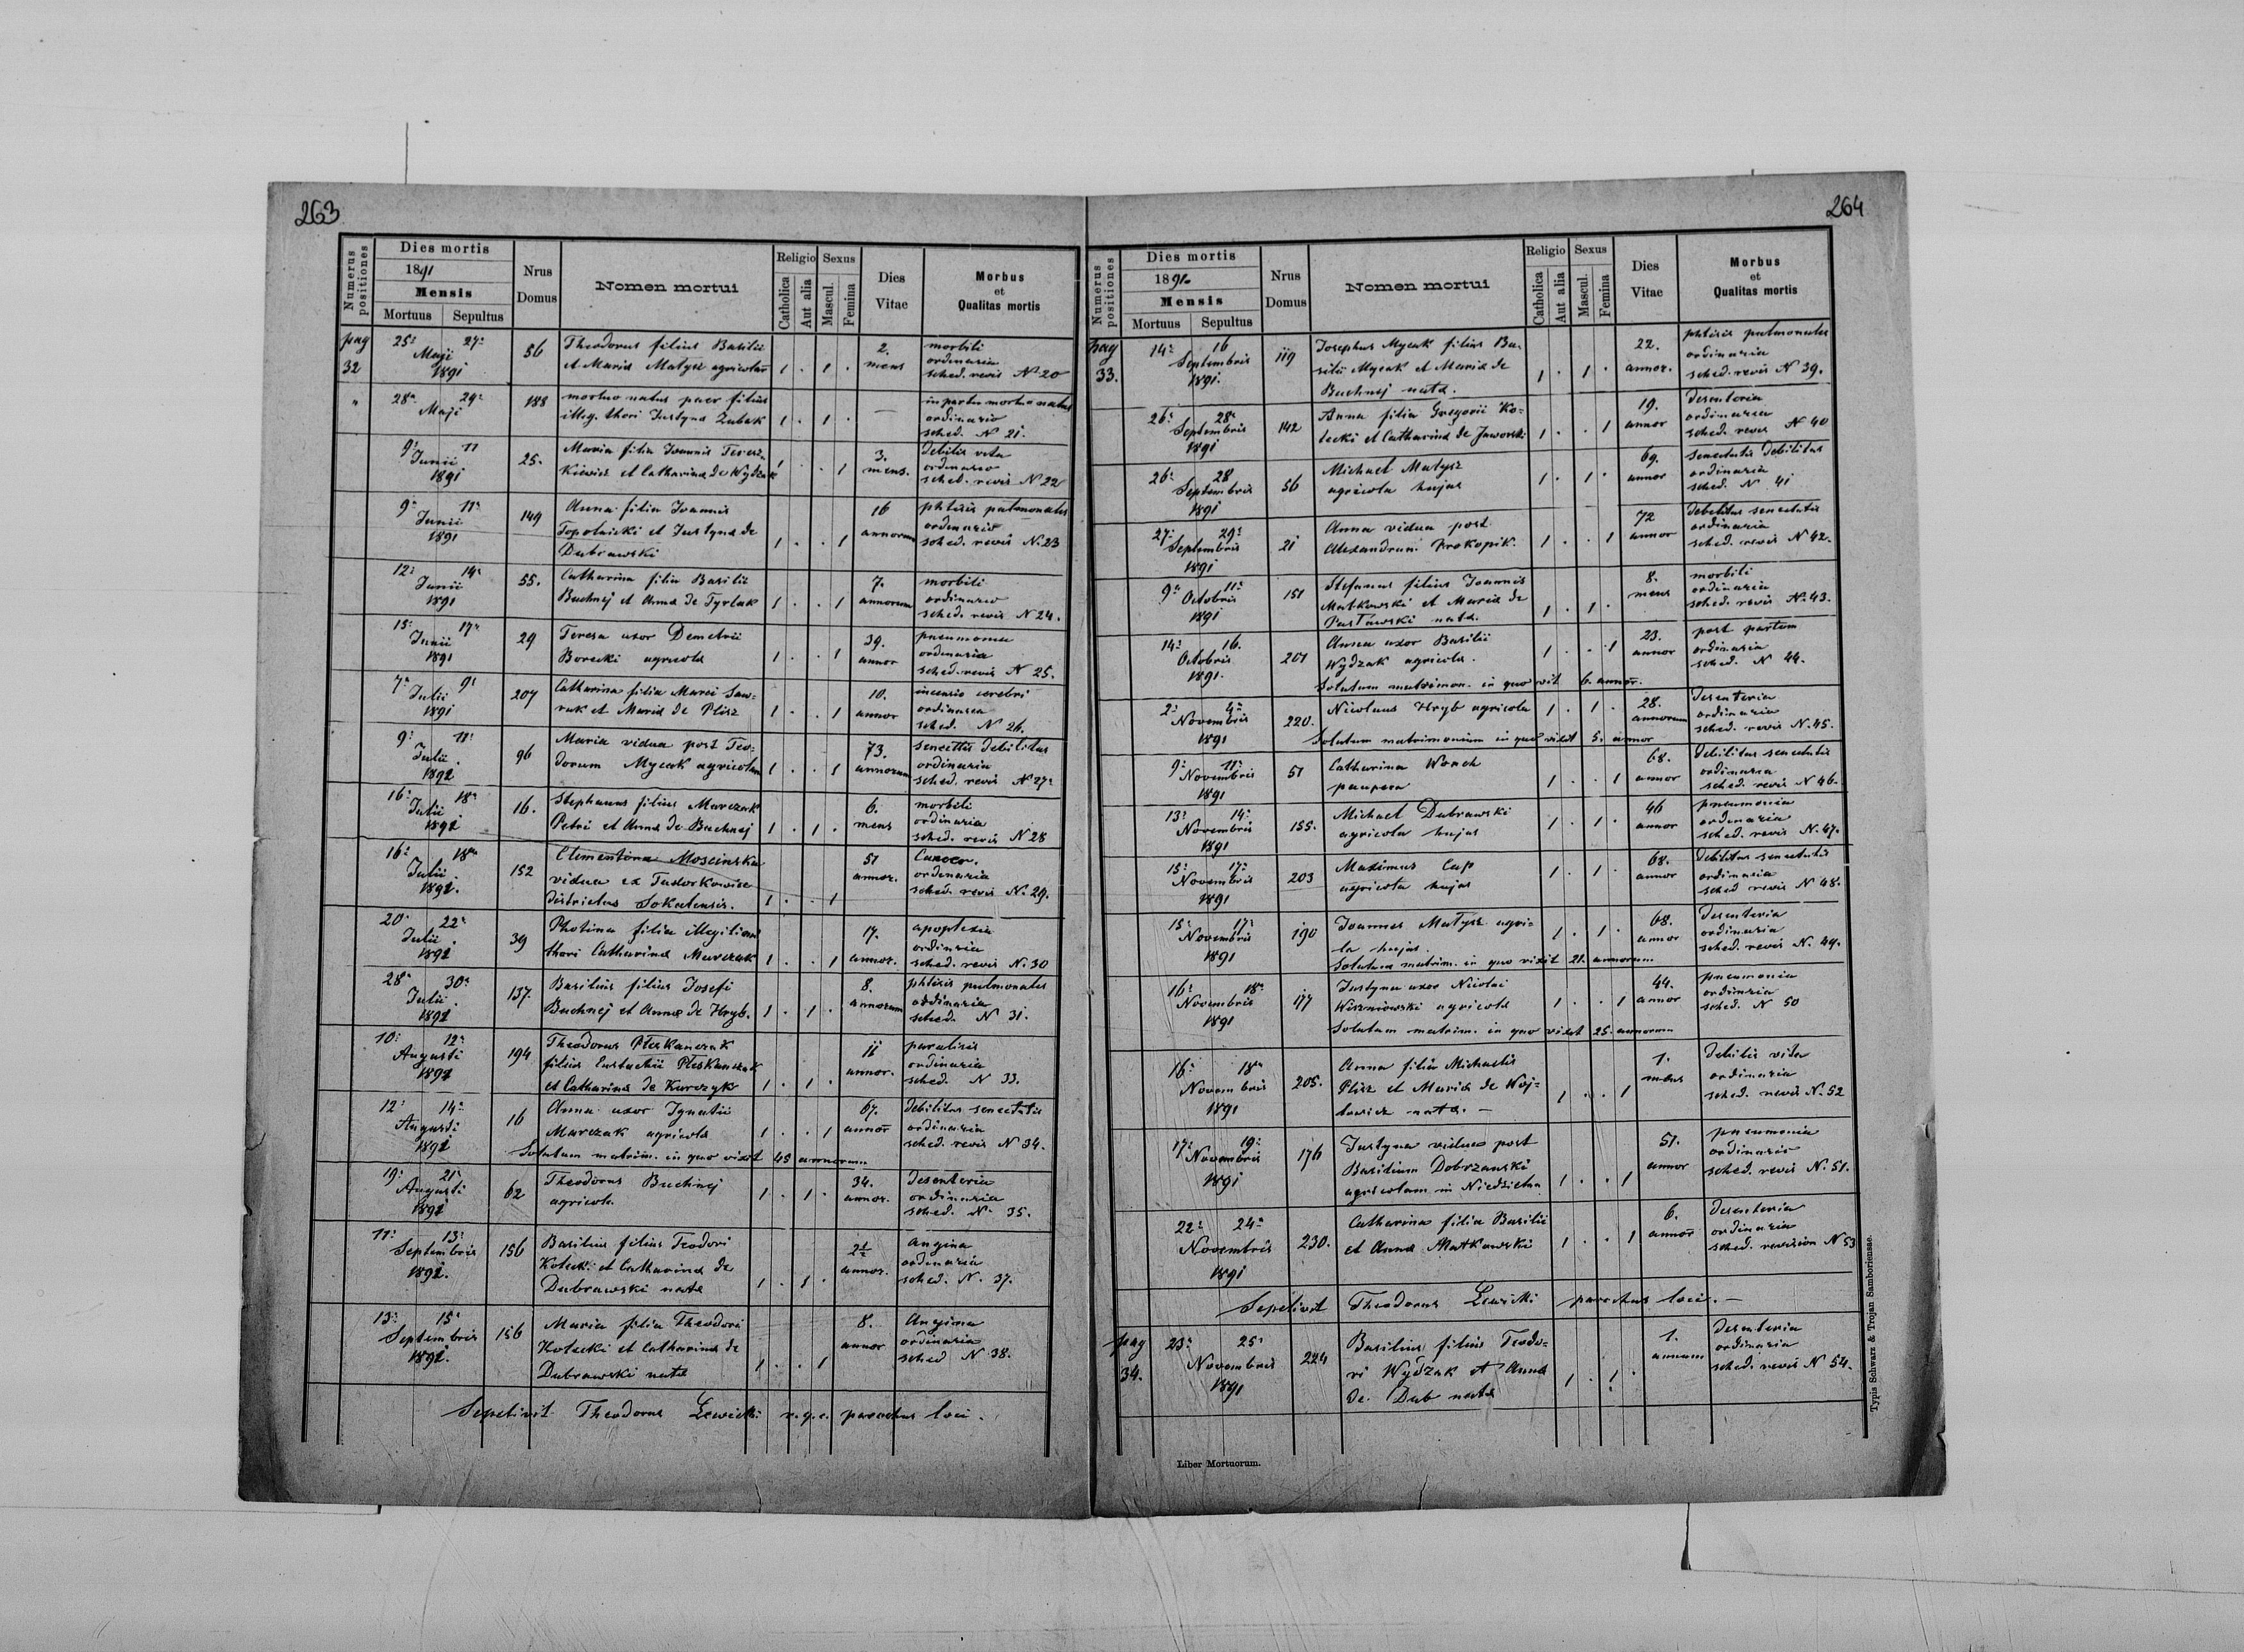 263
Numerus positiones
Dies mortis
1891
Mensis
Mortuus Sepultus
Nrus Domus
Nomen mortui
Religio
Catholica
Aut alia
Sexus
Mascul.
Femina
Dies Vitae
Morbus et Qualitas mortis
pag 32
25 27 56 Theodorus filius Basilii 2. morbili
Maji et Maria Matysz agricolar 1 . 1 . mens ordinaria
1891 sched. revis N 20
" 28 29 188 mortuo natus puer filius — in partu mortuo natus
Maji illeg. thori Justyna Zubak 1 . 1 . ordinario
sched. N 21.
9 11 25. Maria filia Joannis 3. Debilis vita
Junii et Catharina de Wydzak 1 . . 1 mens. ordinario
1891 sched. revis N 22
9 11 149 Anna filia Joannis 16 phtisis pulmonalis
Junii Topolnicki et Justyna de annorum ordinario
1891 Dubrawski 1 . . 1 sched. revis N. 23
12 14 55. Catharina filia Basilii 7. morbili
Junii Buchnej et Anna de Tyrlak 1 . . 1 annorum ordinario
1891 sched. revis N 24.
15 17 29 Teresa uxor Demetrii 39. pneumonia
Junii Borecki agricola 1 . . 1 annor ordinaria
1891 sched. revis N 25.
7 9 207 Catharina filia Marci Saw- 10. cerebri
Julii ruk et Maria de Plisz 1 . . 1 annor ordinaria
1891 sched. N 26.
9 11 96 Maria vidua post Teo- 73. debilitas
Julii dorum Mycak agricolam 1 . . 1 annorum ordinaria
1892 sched. revis N 27
16 18 16. Stephanus filius Marczak 6. morbili
Julii Petri et Anna de Buchnej 1 . 1 . mens ordinaria
1892 sched. revis N 28
16 18 152 Clementina Moscinska 51 Cancer.
Julii vidua ex annor. ordinaria
1892. districtus Sokalensis. 1 . . 1 sched. revis N. 29.
20 22 39 Photina filia illegitimi 17. apoplexia
Julii thori Catharina Marczak 1 . . 1 annor. ordinaria
1892 sched. revis N. 30
28 30 137. Basilius filius Josefi 8. phtisis pulmonalis
Julii Buchnej et Anna de Hryb. 1 . 1 . annorum ordinaria
1892 sched. N 31.
10 12 194 Theodorus Pleskanczak 11 paralisis
Augusti filius Eustachii Pleskanczak annor. ordinaria
1892 et Catharina de Kurczyk 1 . 1 . sched. N 33.
12 14 16 Anna uxor Ignatii 67. debilitas senectutis
Augusti Marczak agricola 1 . . 1 annor ordinaria
1892 Solutum matrim. in quo vixit 45 annorum sched. revis N 34.
19 21 62 Theodorus Buchnej 34. Desenteria
Augusti agricola 1 . 1 . annor. ordinaria
1892 sched. N. 35.
11 13 156 Basilius filius Teodori 2½ Angina
Septembris Kolecki et Catharina de annor. ordinaria
1892. Dubrawski nata 1 . 1 . sched. N. 37.
13 15 156 Maria filia Theodori 8. Angina
Septembris Kolecki et Catharina de annor ordinaria
1892. Dubrawski nata 1 . . 1 sched N 38.
Sepelivit Theodorus Lewicki r.g.c. parochus loci.
264
Numerus positiones
Dies mortis
189
Mensis
Mortuus Sepultus
Nrus Domus
Nomen mortui
Religio
Catholica
Aut alia
Sexus
Mascul.
Femina
Dies Vitae
Morbus et Qualitas mortis
pag 33.
14 16 119 Josephus Mycak filius Ba- 22. phtisis pulmonalis
Septembris silii Mycak et Maria de annor. ordinaria
1891. Buchnej nata. 1 . 1 . sched. revis N 39.
26 28 142 Anna filia Gregorii Ko- 19. Desenteria
Septembris lecki et Catharina de Jaworski 1 . . 1 annor ordinaria
1891 sched. revis N 40
26 28 56 Michael Matysz 69. senectutis debilitas
Septembris agricola hujas 1 . 1 . annor ordinaria
1891 sched. N 41
27 29 21 Anna vidua post 72 debilitas senectutis
Septembris Alexandrum Prokopik. 1 . . 1 annor ordinaria
1891 sched. revis N 42.
9 11 151 Stefanus filius Joannis 8. morbili
Octobris Matkowski et Maria de mens ordinaria
1891 nata. 1 . 1 . sched. revis N. 43.
14 16. 201 Anna uxor Basilii 23. post partum
Octobris Wydzak agricola. 1 . . 1 annor ordinaria
1891. Solutum matrimon. in quo vixit 6. annor. sched. N 44.
2 4 220. Nicolaus Hryb agricola 1 . 1 . 28. Desenteria
Novembris annorum ordinaria
1891 Solutum matrimonium in quo vixit 5. annor sched. revis N. 45.
9 11 51 Catharina Worch 68. debilitas senectutis
Novembris paupera 1 . . 1 annor ordinaria
1891 sched. revis N 46.
13 14 155. Michael Dubrawski 46 pneumonia
Novembris agricola hujas 1 . 1 . annor ordinaria
1891 sched. revis N. 47.
15 17 203 Maximus Cap 68. debilitas senectutis
Novembris agricola hujas 1 . 1 . annor ordinaria
1891 sched revis N 48.
15 17 190 Joannes Matysz agri- 68. Desenteria
Novembris la hujas. 1 . 1 . annor ordinaria
1891 Solutum matrim. in quo vixit 21. annorum sched. revis N. 49.
16 18 177 Justyna uxor Nicolai 44. pneumonia
Novembris Wiszniowski agricola 1 . . 1 annor ordinaria
1891 Solutum matrim. in quo vixit 25. annorum sched. N 50
16 18 205. Anna filia Michaelis 1. Debilis vita
Novembris Plisz et Maria de Woj- mens ordinaria
1891 nata. — 1 . . 1 sched. revis N. 52
17 19 176 Justyna vidua post 51. pneumonia
Novembris Basilium Dobrzanski annor ordinaria
1891 agricolam in Niedzielna 1 . . 1 sched. revis N. 51.
22 24 230. Catharina filia Basilii 6. Desenteria
Novembris et Anna Matkowski 1 . . 1 annor ordinaria
1891 sched. revision N 53
Sepelivit Theodorus Lewicki parochus loci. —
pag 34.
23 25 224 Basilius filius Teodo- 1. Desenteria
Novembris ri Wydzak et Anna annum ordinaria
1891 de Dub nata 1 . 1 . sched. revis N 54.
Liber Mortuorum.
Typis Schwarz & Trojan Samboriensae.